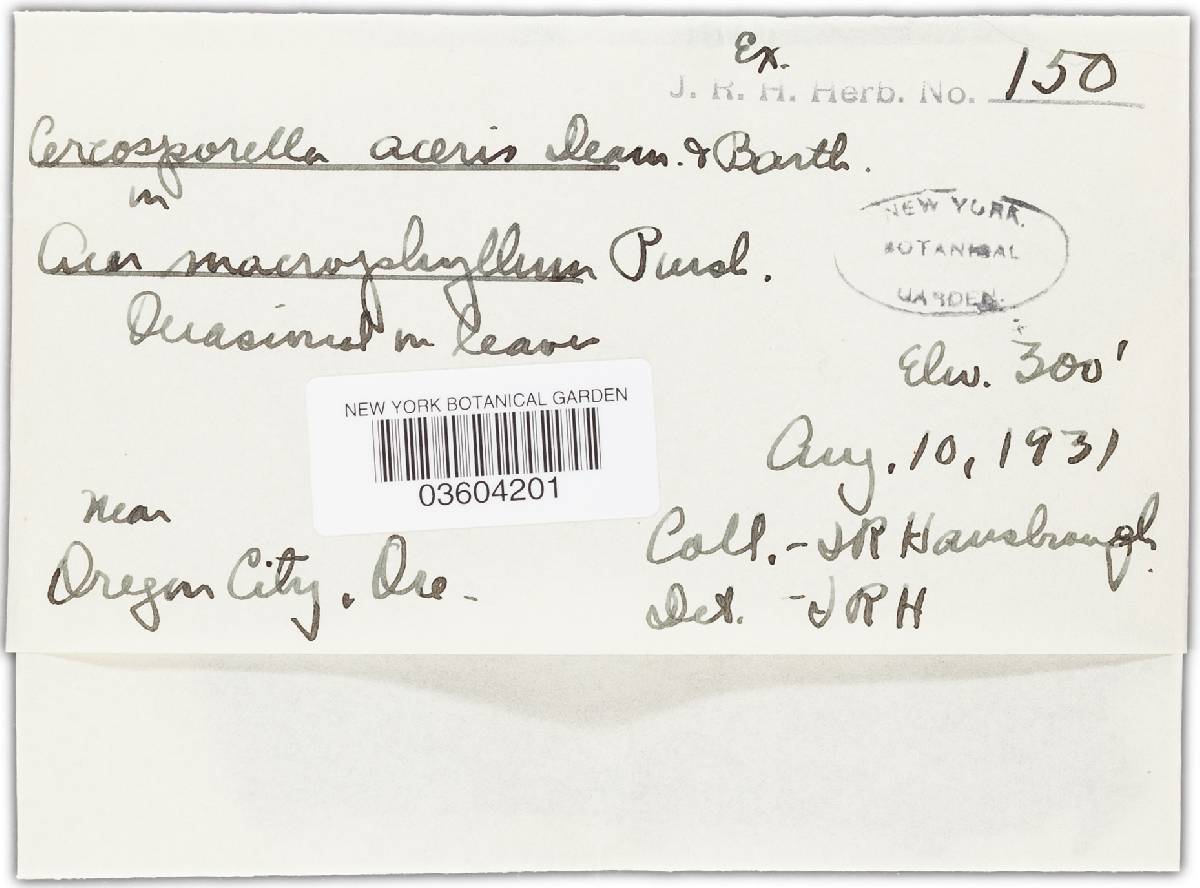 Ex.
J. R. H. Herb. No. 150
Cercosporella aceris Dearn. & Barth.
on
Acer macrophyllum Pursh.
NEW YORK
BOTANICAL
GARDEN.
Occasional on leaves
Elev. 300'
NEW YORK BOTANICAL GARDEN
03604201
Aug. 10, 1931
Near
Oregon City, Ore.
Coll. - JR Hansbrough.
Det. - JRH